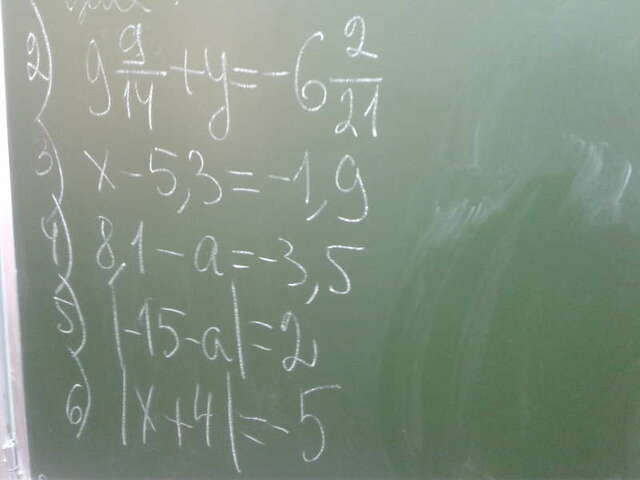 2) 9 9/14 + y = -6 2/21
3) x - 5,3 = -1,9
4) 8,1 - a = -3,5
5) |-15 - a| = 2
6) |x + 4| = -5